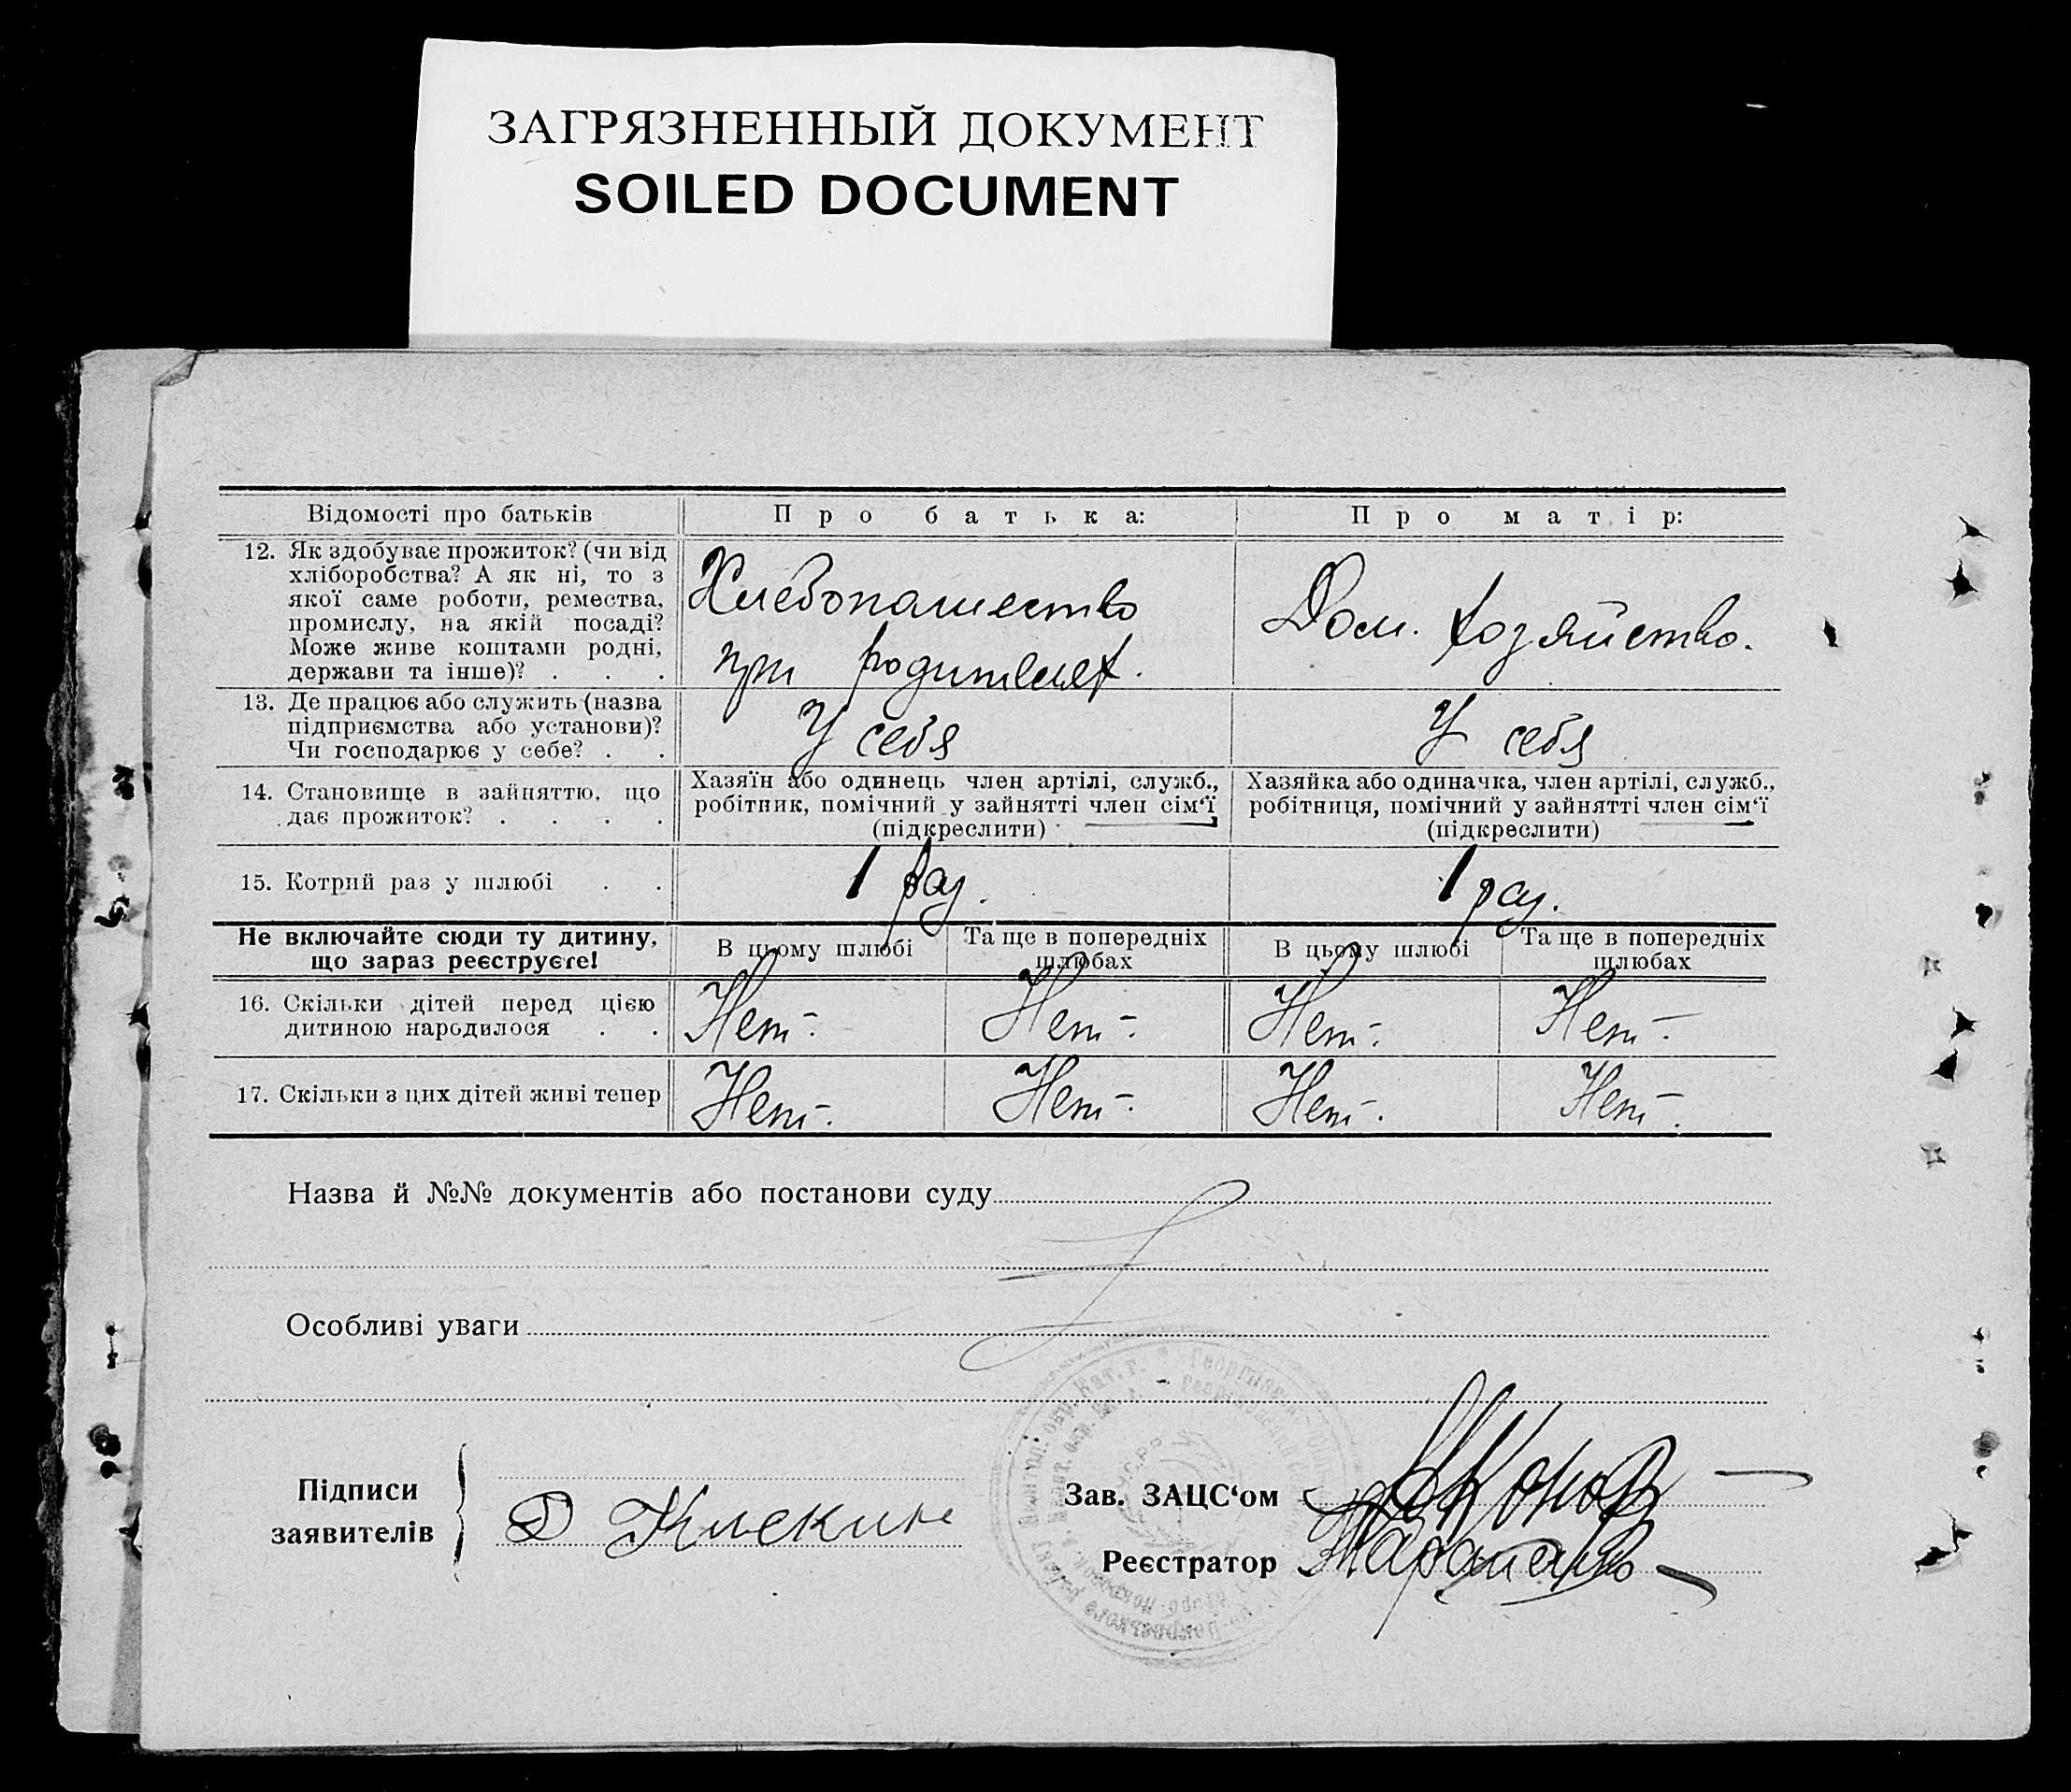 ЗАГРЯЗНЕННЫЙ ДОКУМЕНТ
SOILED DOCUMENT
Відомості про батьків
Про батька:
Про матір:
12. Як здобуває прожиток? (чи від
хліборобства? А як ні, то з
якої саме роботи, ремества,
промислу, на якій посаді?
Може живе коштами родні,
держави та інше)? . . .
Хлебопашество
при родителях.
Дом. хозяйство.
13. Де працює або служить (назва
підприємства або установи)?
Чи господарює у себе? . .
У себя
У себя
14. Становище в зайняттю, що
дає прожиток? . . . .
Хазяїн або одинець член артілі, служб.,
робітник, помічний у зайнятті член сім‘ї
(підкреслити)
Хазяйка або одиначка, член артілі, служб.,
робітниця, помічний у зайнятті член сім‘ї
(підкреслити)
15. Котрий раз у шлюбі . .
1 раз.
1 раз.
Не включайте сюди ту дитину,
що зараз реєструєте!
В цьому шлюбі
Та ще в попередніх
шлюбах
В цьому шлюбі
Та ще в попередніх
шлюбах
16. Скільки дітей перед цією
дитиною народилося . .
Нет.
Нет.
Нет.
Нет.
17. Скільки з цих дітей живі тепер
Нет.
Нет.
Нет.
Нет.
Назва й №№ документів або постанови суду
Особливі уваги
Підписи
заявителів
Д
Зав. ЗАЦС‘ом
Реєстратор